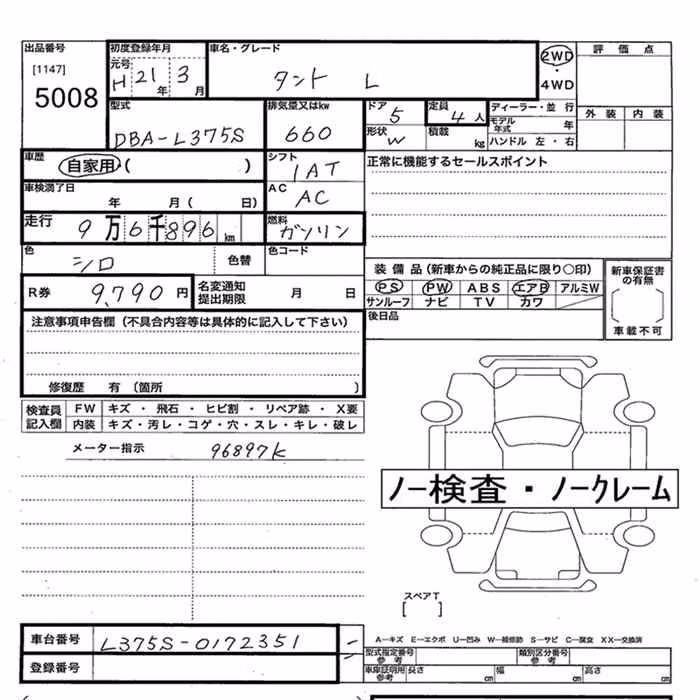 出品番号 初度登録年月 車名・グレード 評価点
[1147] 元号 H 21年 3月 タント L 2WD ・ 4WD
5008 外装 内装
型式 DBA-L375S 排気量又はkw 660 ドア 5 定員 4人 ディーラー・並行
形状 W 積載 kg モデル年式 年
ハンドル 左・右
車歴 自家用・( ) シフト IAT 正常に機能するセールスポイント
車検満了日 年 月( 日) AC AC
走行 9万6千896km 燃料 ガソリン
色 シロ 色替 色コード
装備品(新車からの純正品に限り○印) 新車保証書の有無
R券 9,790円 名変通知提出期限 月 日 PS PW ABS エアB アルミW
サンルーフ ナビ TV カワ
注意事項申告欄(不具合内容等は具体的に記入して下さい) 後日品 車載不可
修復歴 有(箇所 )
検査員記入欄 FW キズ・飛石・ヒビ割・リペア跡・X要
内装 キズ・汚レ・コゲ・穴・スレ・キレ・破レ
メーター指示 96897K
ノー検査・ノークレーム
スペアT
[ ]
車台番号 L375S-0172351 A―キズ E―エクボ U―凹み W―補修跡 S―サビ C―腐食 XX―交換済
型式指定番号 参考 類別区分番号 参考
登録番号 車庫証明用 参考 長さ cm 幅 cm 高さ cm